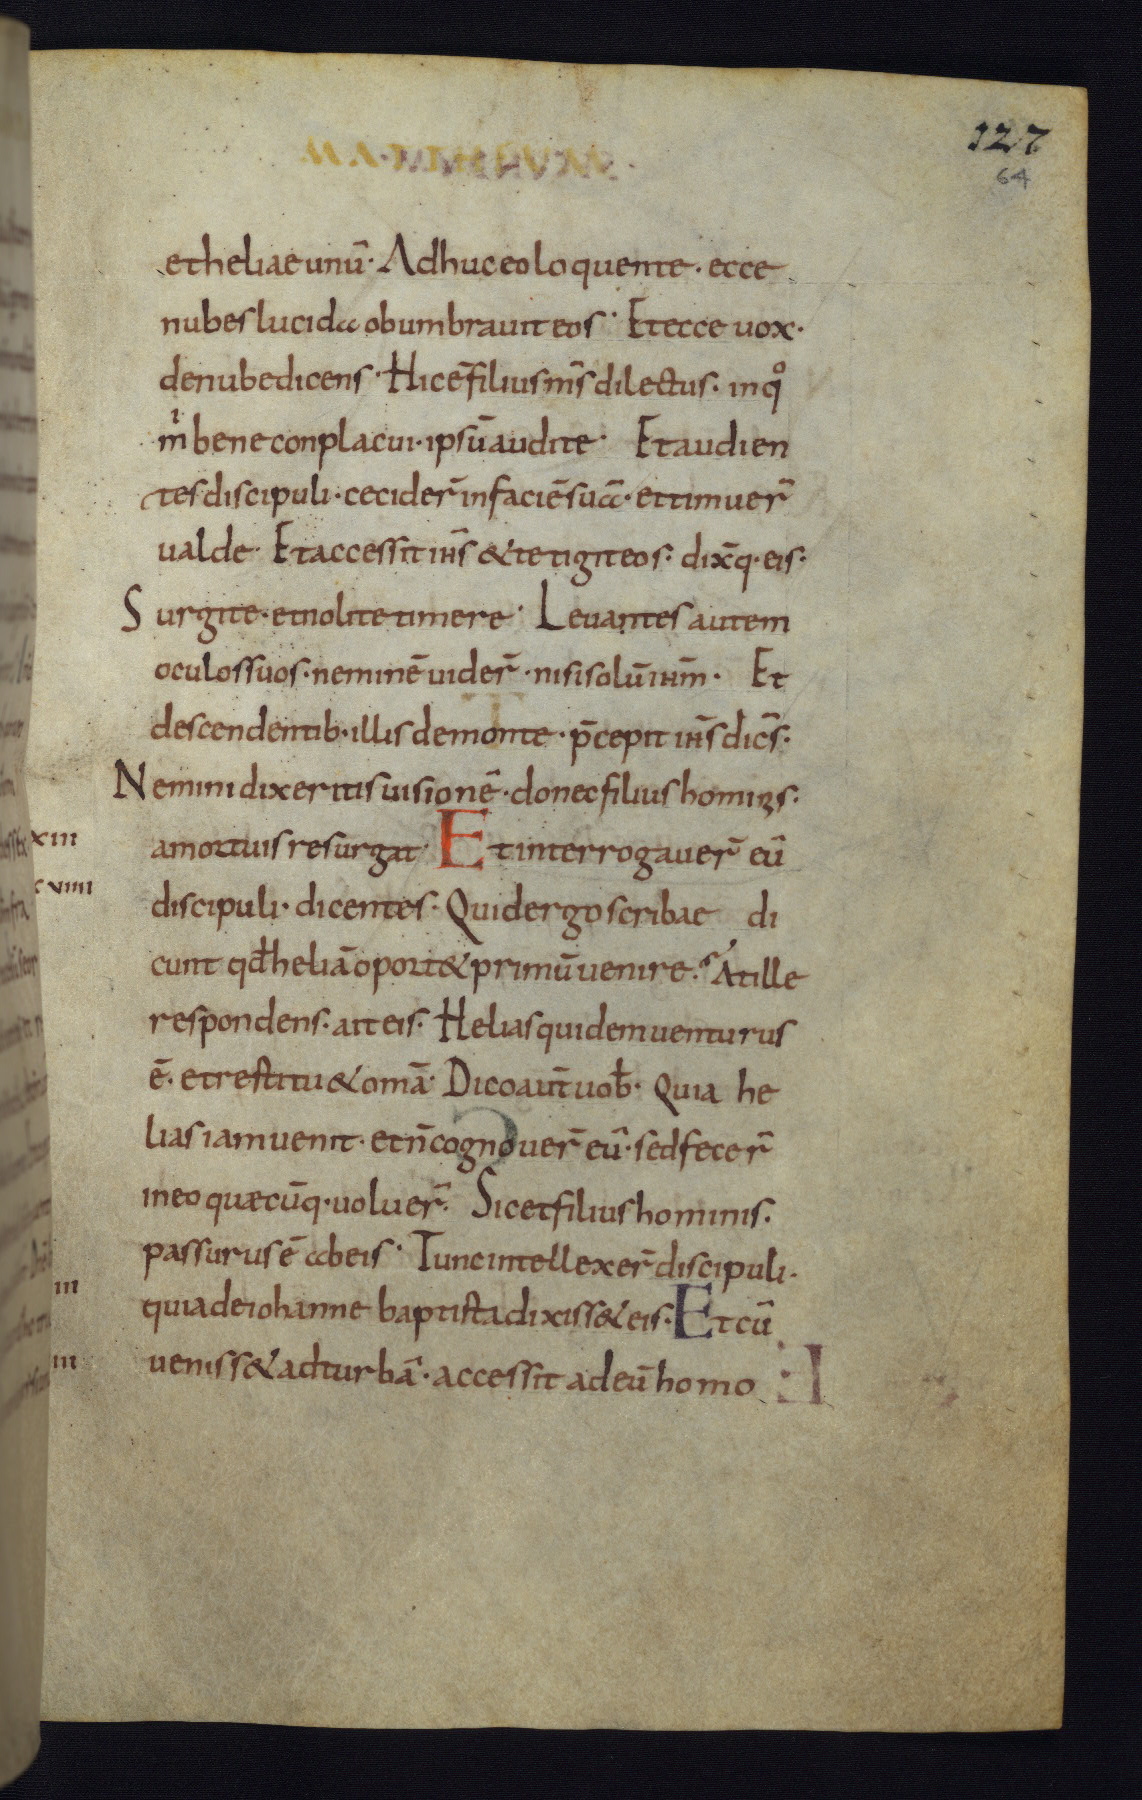 127
64
et heliae unū· Adhuc eo loquente· ecce
nubes lucida obumbrauit eos· Et ecce uox·
de nube dicens· Hic ē filius m̄s dilectus· in qͦ
mͥ bene conplacui· ipsū audite· Et audien
tes discipuli· cecider̄ in faciē suā· et timuer̄
ualde· Et accessit ih̄s & tetigit eos· dix̄q· eis·
Surgite· et nolite timere· Leuantes autem
oculos suos· neminē uider̄· nisi solū ih̄m· Et
descendentib· illis de monte· p̄cepit ih̄s dic̄s·
Nemini dixeritis uisionē· donec filius hominis·
a mortuis resurgat· Et interrogauer̄ eū
discipuli· dicentes· Quid ergo scribae di
cunt qđ heliā oport& primū uenire· At ille
respondens· ait eis· Helias quidem uenturus
ē· et restitu& omā· Dico aut̄ uob̄· Quia he
lias iam uenit· et n̄ cognouer̄ eū· sed fecer̄
in eo quæcūq· uoluer̄· Sic et filius hominis·
passurus ē ab eis· Tunc intellexer̄ discipuli·
quia de iohanne baptista dixiss& eis· Et cū
ueniss& ad turbā· accessit ad eū homo
xiii
cviiii
iii
iii